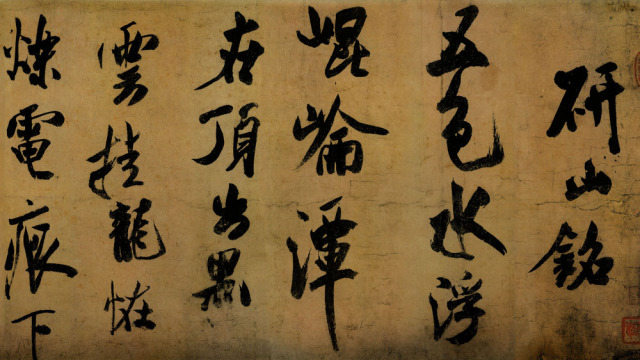 研山銘
五色水浮
崐崘潭
在頂出黑
雲挂龍恠
爍電痕下